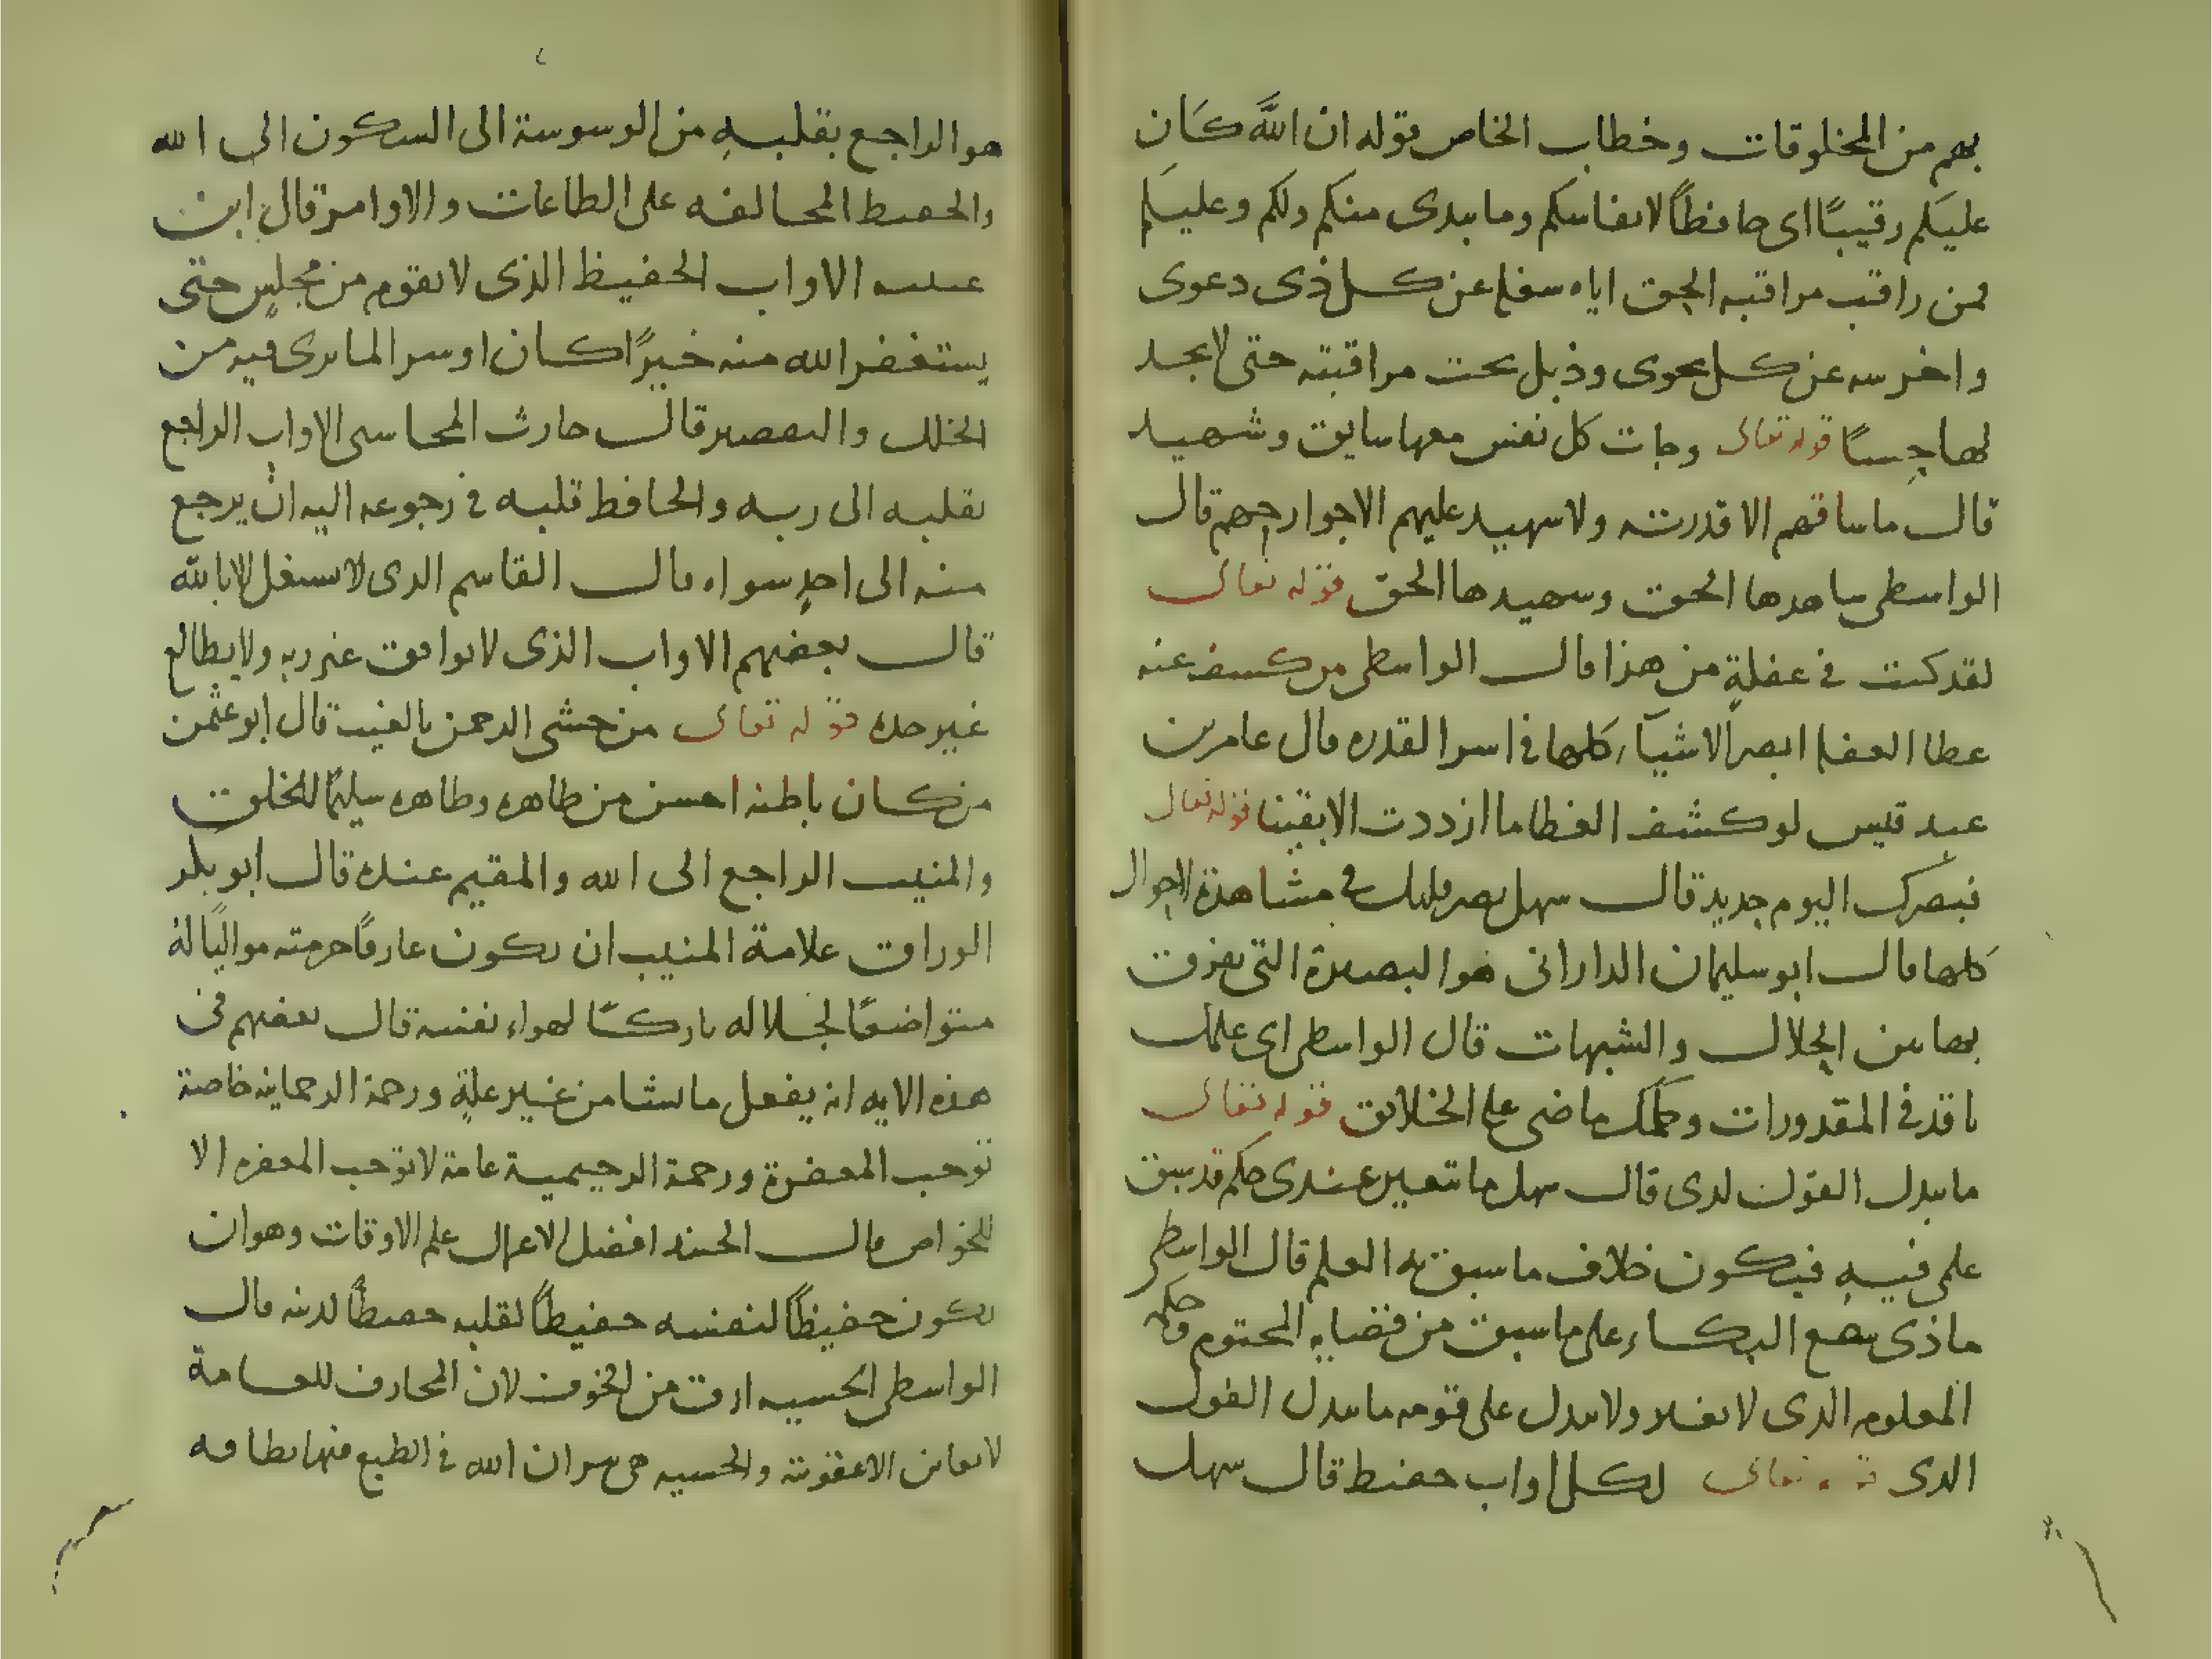 بهم من المخلوقات وخطاب الخاص قوله ان اللَّه كَان
عليَكم رقيبًا اى حافظًا لانفاسكم وما يبدى منكم ولكم وعليكم
فمن راقب مراقبه الحق اياه عن كل ذى دعوى
واخرسه عن كل نجوى وذبل تحت مراقبته حتى لا يجد
لها حِسسًا قوله تعالى وجات كل نفس معها سايق وشهيد
قال ما ساقهم الا قدرته ولا سهيد عليهم الا جوارحهم قال
الواسطى ساهدها الحق وسهيدها الحق قوله تعالى
لقد كنت فى غفلةٍ من هذا قال الواسطى من كسف عنه
عطا الغفله ابصر الاشيآء كلها فى اسر القدره قال عامر بن
عبد قيس لو كشف الغطا ما ازددت الا يقينا قوله تعالى
فبصرك اليوم جديد قال سهل بصر قلبك فى مشاهدة الاحوال
كلها قال ابو سليمان الدارانى هو البصيرة التى يفرق
بها بين الحلال والشبهات قال الواسطى اى علمك
نافذ فى المقدورات وحكمك ماضى على الخلايق قوله تعالى
ما يبدل القول لدى قال سهل ما يتغير عندى حكم قد سبق
علمى فيه فيكون خلاف ما سبق به العلم قال الواسطى
ماذى ينفع البكاء على ما سبق من قضايه المحتوم وحكمه
المعلوم الذى لا ولا يبدل على قومه ما يبدل القول
الدى قوله تعالى لكل اواب حفيظ قال سهل
هو الراجع بقلبهِ من الوسوسة الى السكون الى الله
والحفيط المحالفه على الطاعات والاوامر قال ابن
عيينه الاواب الحفيظ الذى لا يقوم من مجلسٍ حتى
يستغفر الله منه خيرًا كان او سرا لما يرى فيه من
الخلل والتقصير قال حارث المحاسبى الاواب الراجع
بقلبه الى ربه والحافظ قلبه فى رجوعه اليه ان يرجع
منه الى احدٍ سواه قال القاسم الذى لا يستغل الا بالله
قال بعضهم الاواب الذى لا يوافق غير ربه ولا يطالع
غير حده قوله تعالى من خشى الرحمن بالغيب قال ابو عثمن
من كان باطنه احسن من ظاهره وظاهره سليمًا للخلق
والمنيب الراجع الى الله والمقيم عنده قال ابو بكر
الوراق علامة المنيب ان يكون عارفًا حرمته مواليًا له
متواضعًا لجلاله تاركًا لهواء نفسه قال بعضهم فى
هذه الايه انه يفعل ما يشا من غير علةٍ ورحمة الرحمانيه خاصة
توجب المغفرة ورحمة الرحيمية عامة لا توجب المغفره الا
للخواص قال الجنيد افضل الاعمال علم الاوقات وهو ان
يكون حفيظًا لنفسه حفيظًا لقلبه حفيظًا لدينه قال
الواسطى الخسيه ارق من الخوف لان المخاوف للعامة
لا يعاين الا عقوبته والخسيه هى الله فى الطبع فيها نظافه